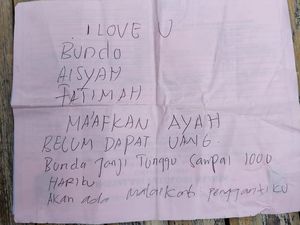 I LOVE U
Bunda
AISYAH
FATIMAH
MAAFKAN AYAH
BELUM DAPAT UANG
Bunda Janji Tunggu Sampai 1000
HARI
Akan ada malaikat pengganti ku